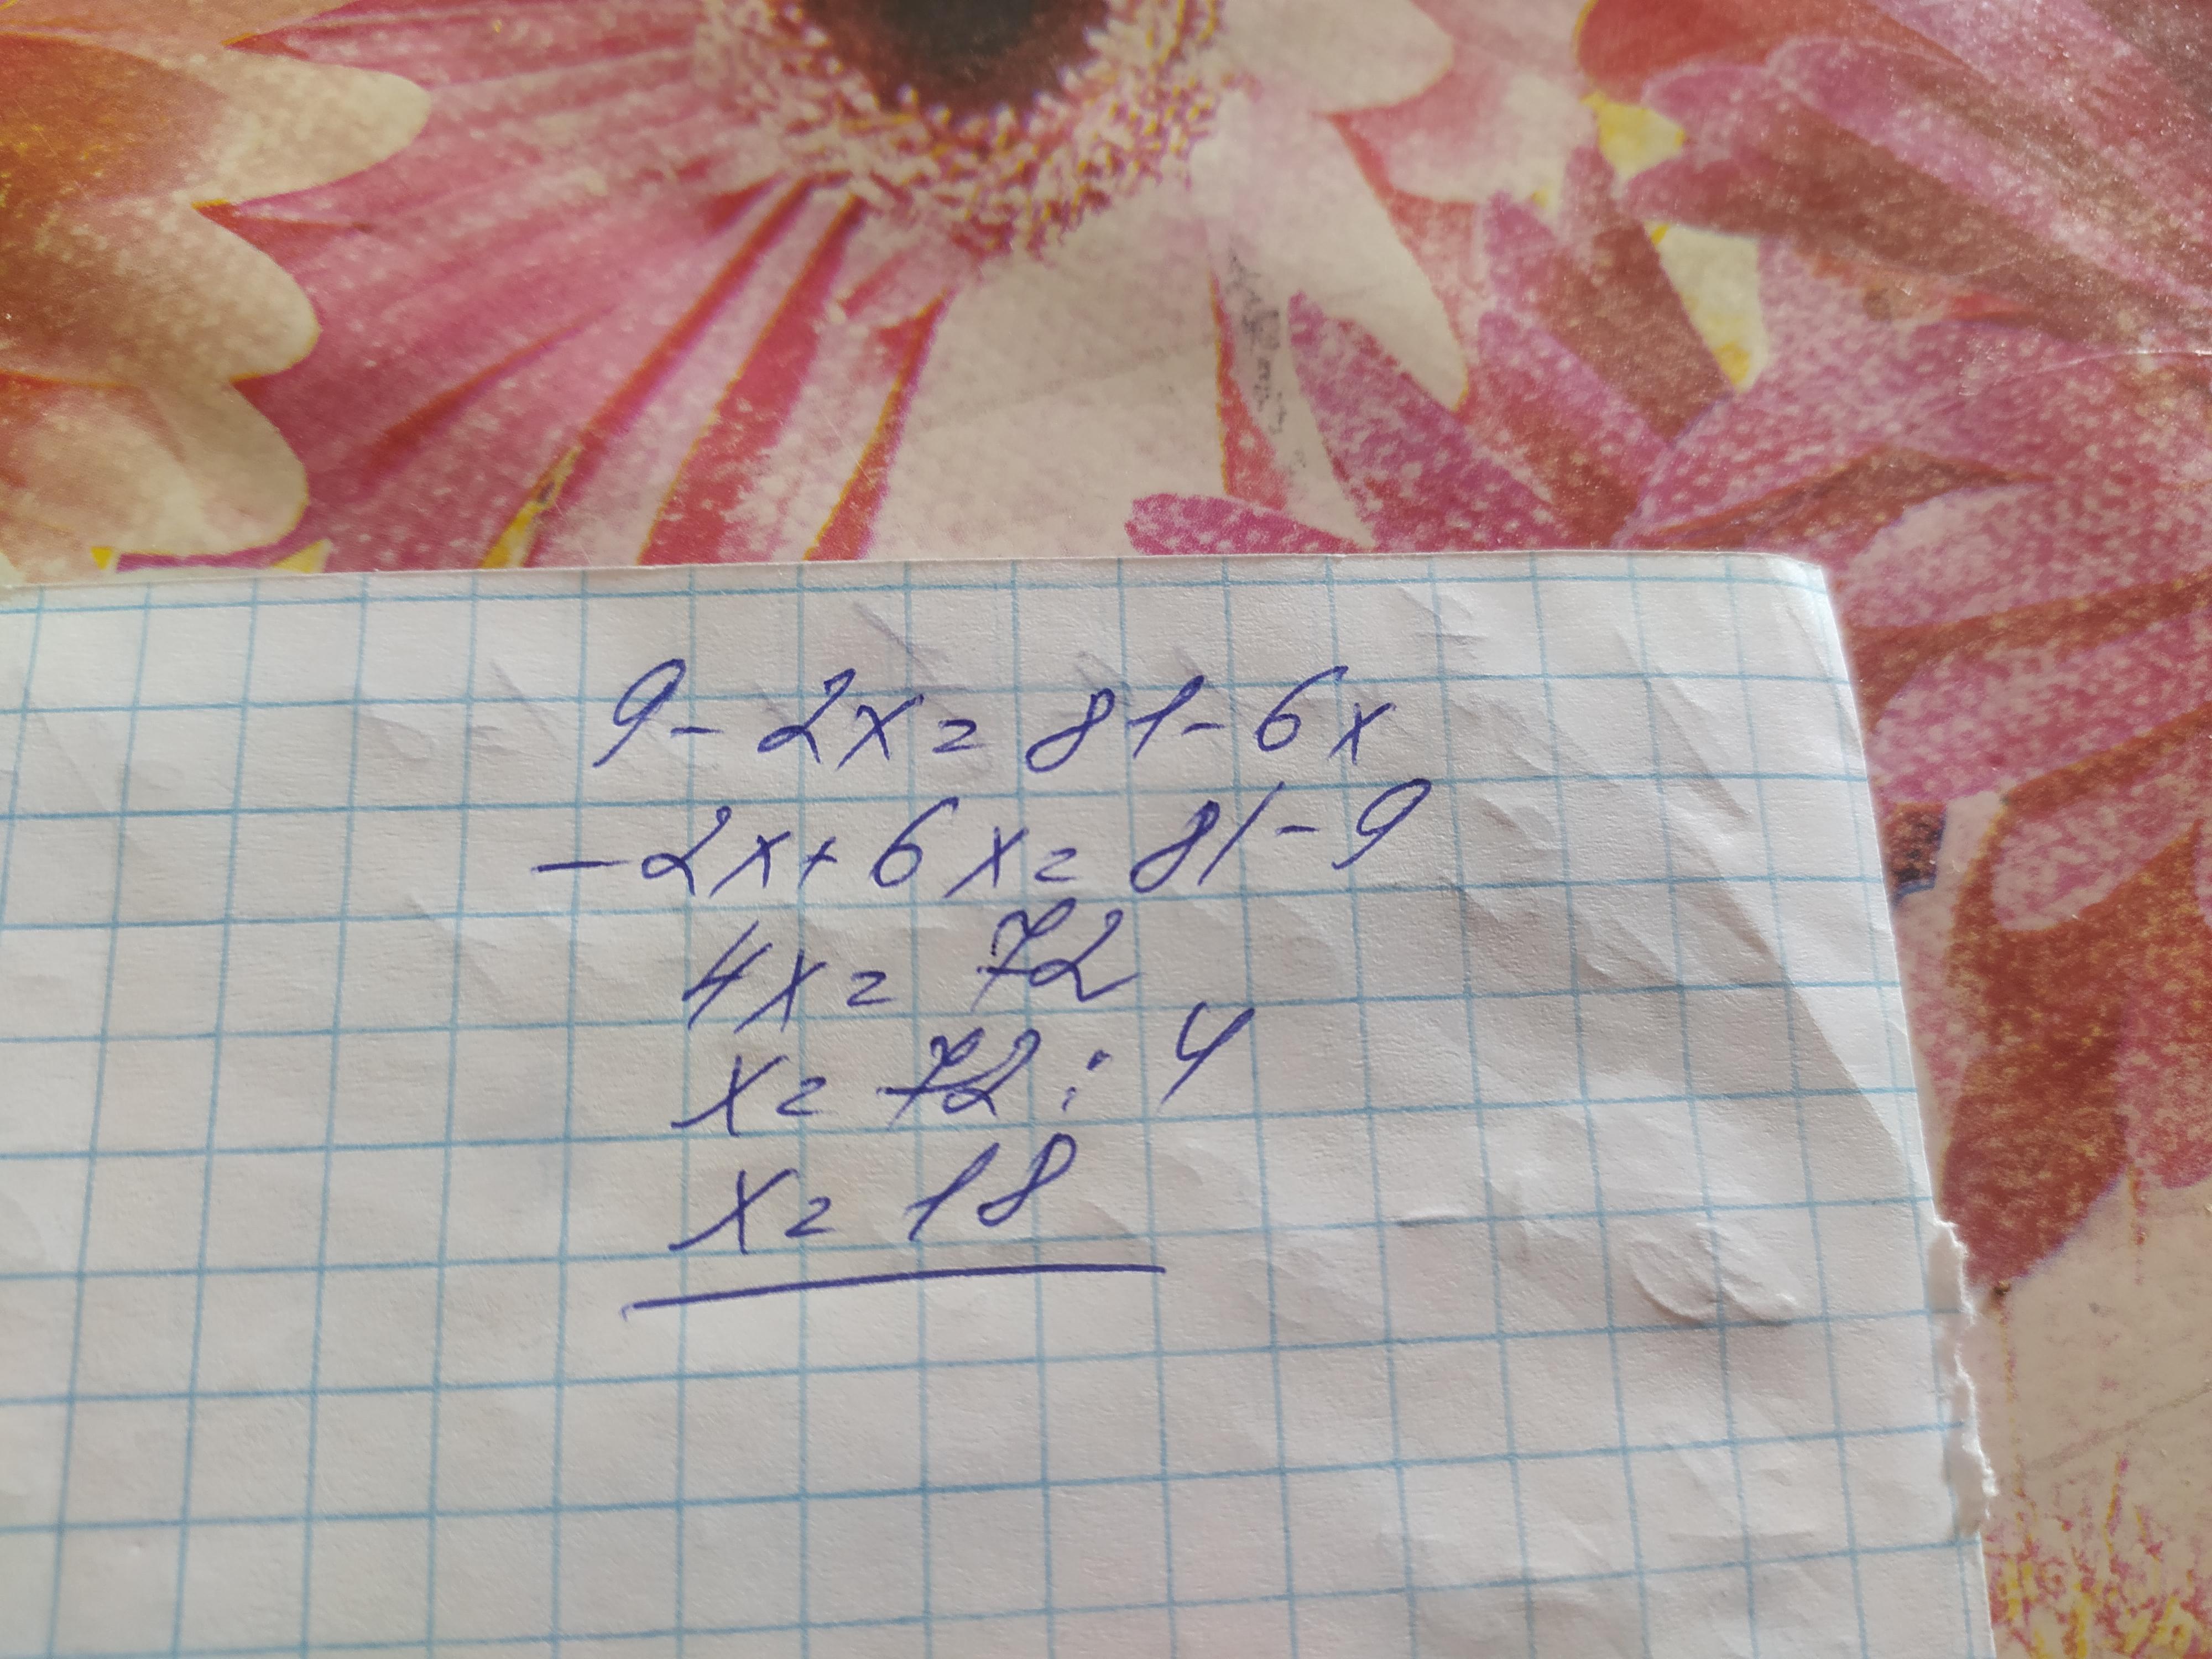 9 - 2x = 81 - 6x
- 2x + 6x = 81 - 9
4x = 72
x = 72 : 4
x = 18